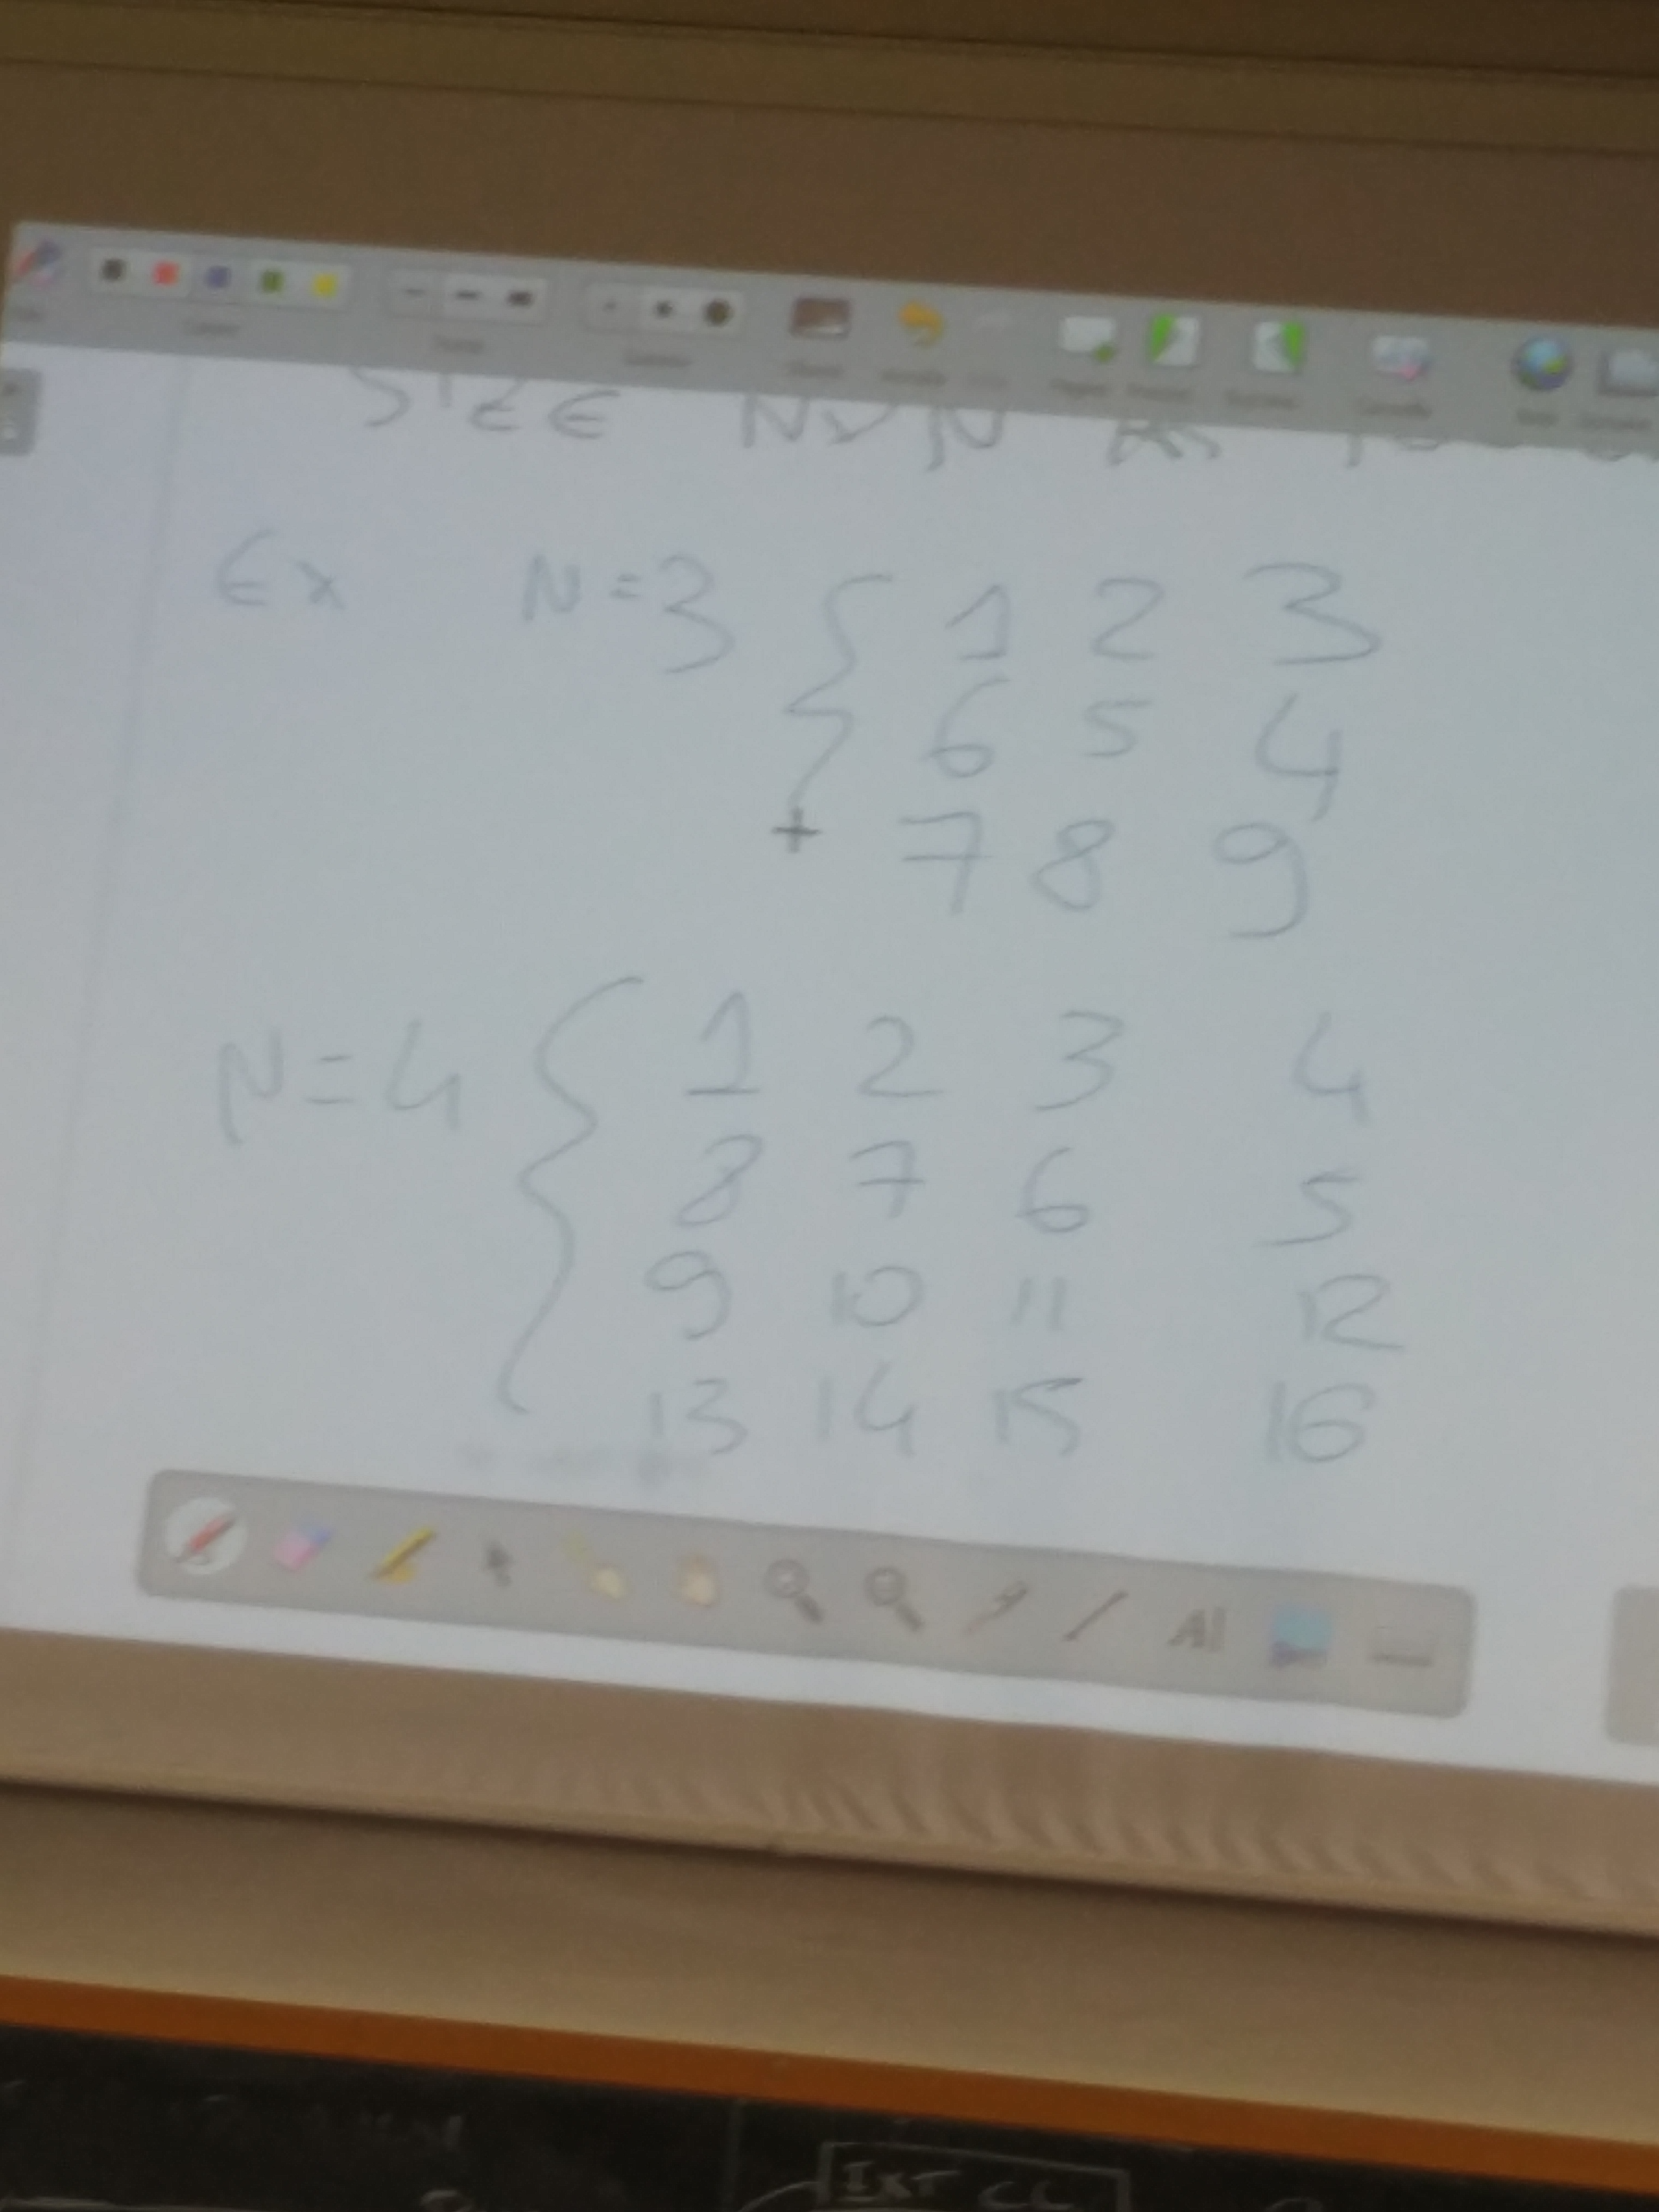 SIZE NxN AS
Ex N=3 { 1 2 3
6 5 4
7 8 9
N=4 { 1 2 3 4
8 7 6 5
9 10 11 12
13 14 15 16
AI